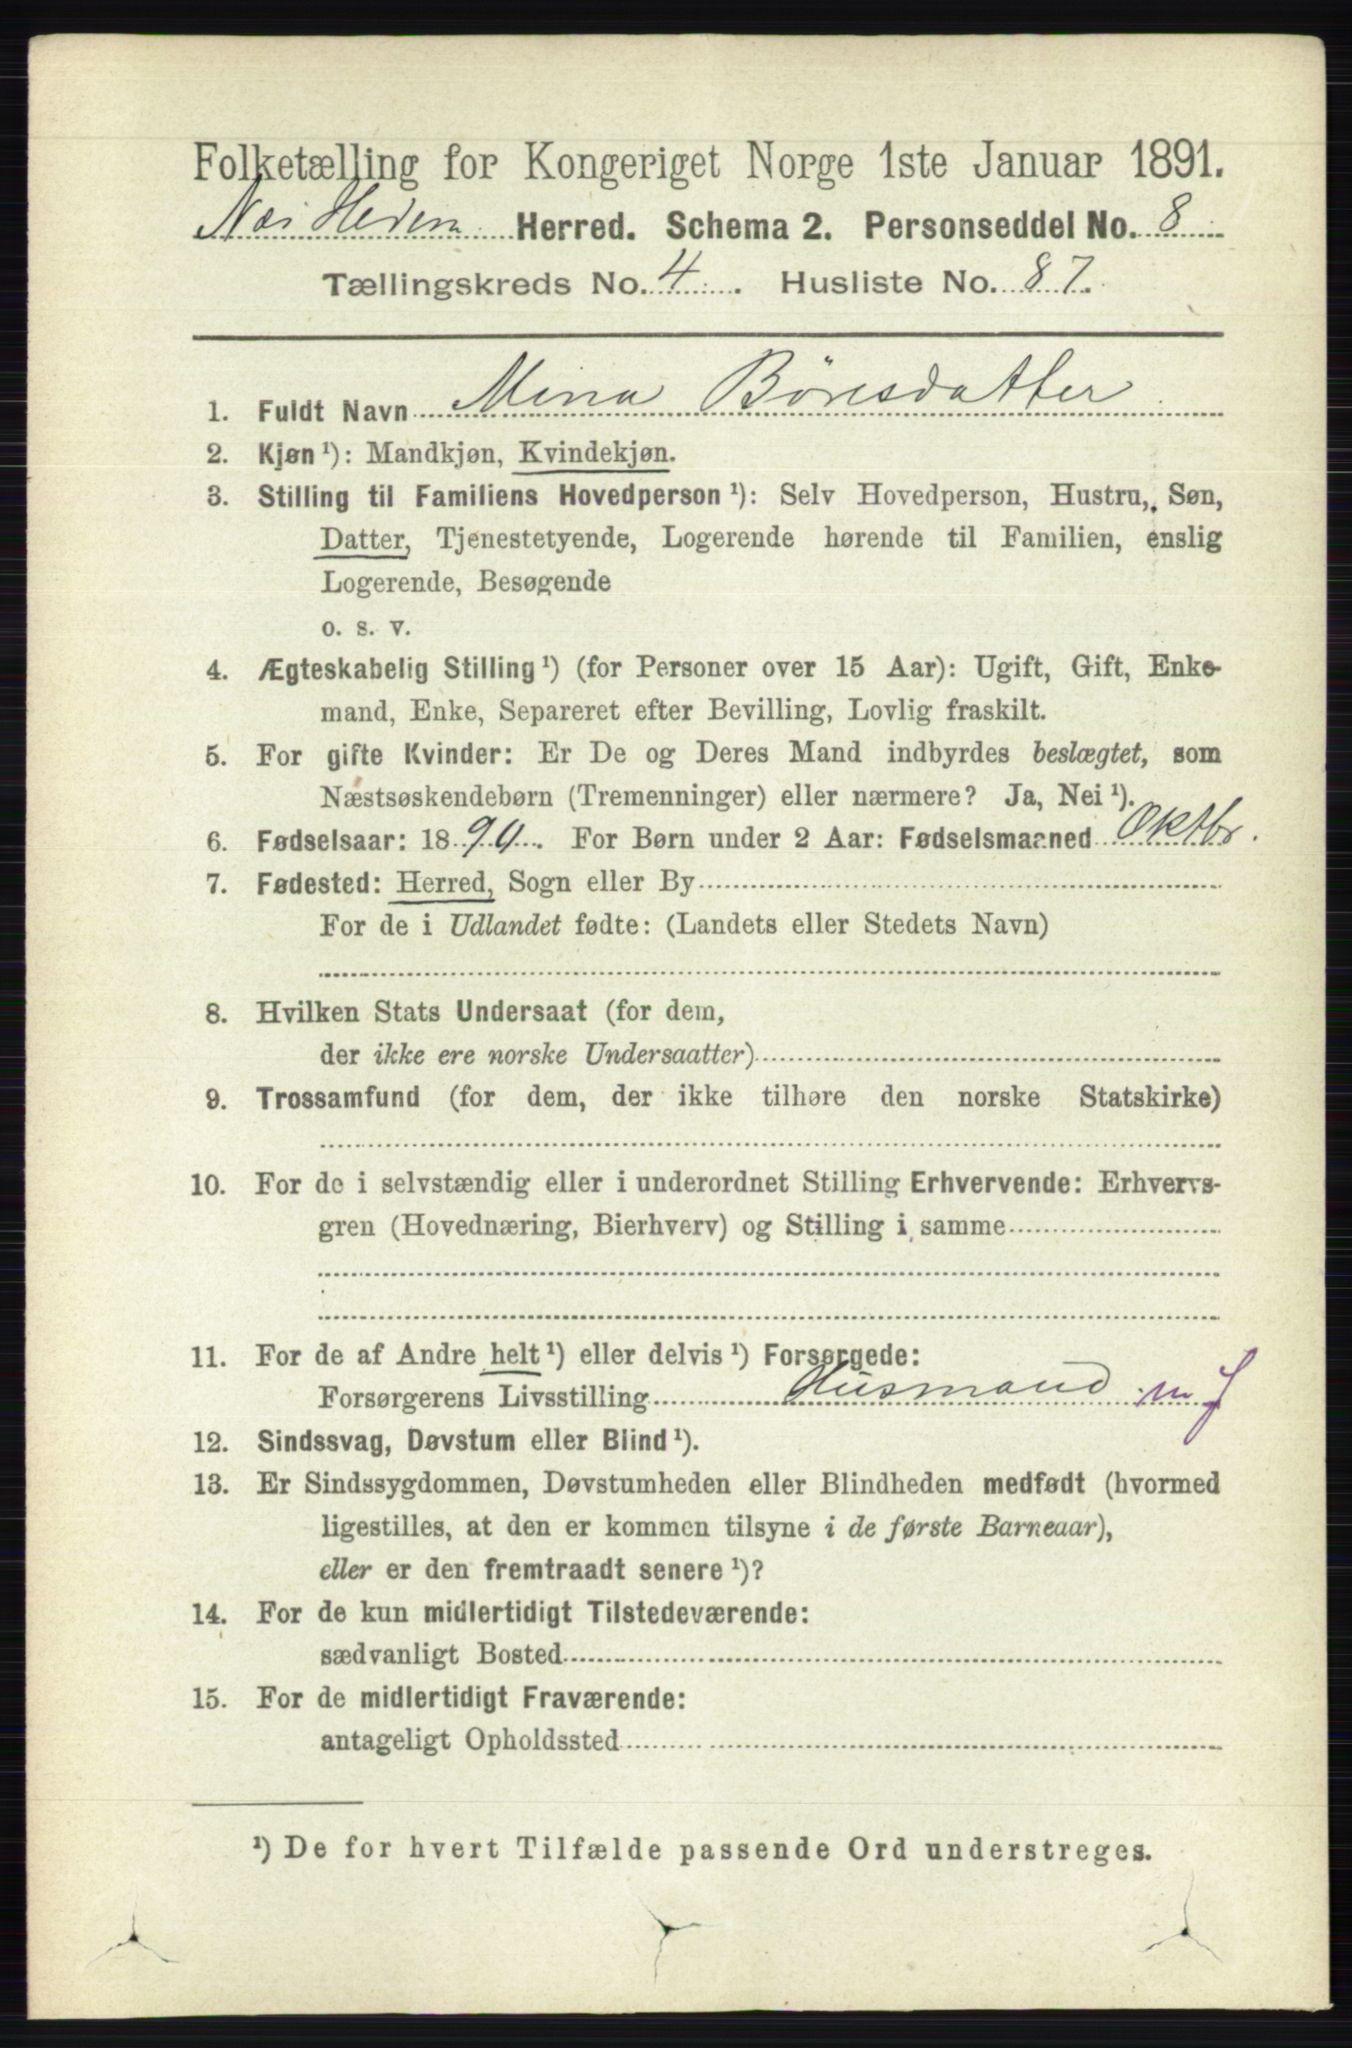 Folketælling for Kongeriget Norge 1ste Januar 1891.
Nes Hedem Herred. Schema 2. Personseddel No. 8
Tællingskreds No. 4. Husliste No. 87.
1. Fuldt Navn Mina Böresdatter
2. Kjøn ¹): Mandkjøn, Kvindekjøn.
3. Stilling til Familiens Hovedperson ¹): Selv Hovedperson, Hustru, Søn,
Datter, Tjenestetyende, Logerende hørende til Familien, enslig
Logerende, Besøgende
o. s. v.
4. Ægteskabelig Stilling ¹) (for Personer over 15 Aar): Ugift, Gift, Enke-
mand, Enke, Separeret efter Bevilling, Lovlig fraskilt.
5. For gifte Kvinder: Er De og Deres Mand indbyrdes beslægtet, som
Næstsøskendebørn (Tremenninger) eller nærmere? Ja, Nei ¹).
6. Fødselsaar: 1890. For Børn under 2 Aar: Fødselsmaaned Oktbr.
7. Fødested: Herred, Sogn eller By
For de i Udlandet fødte: (Landets eller Stedets Navn)
8. Hvilken Stats Undersaat (for dem,
der ikke ere norske Undersaatter)
9. Trossamfund (for dem, der ikke tilhøre den norske Statskirke)
10. For de i selvstændig eller i underordnet Stilling Erhvervende: Erhvervs-
gren (Hovednæring, Bierhverv) og Stilling i samme
11. For de af Andre helt ¹) eller delvis ¹) Forsørgede:
Forsørgerens Livsstilling Husmand m J
12. Sindssvag, Døvstum eller Blind ¹).
13. Er Sindssygdommen, Døvstumheden eller Blindheden medfødt (hvormed
ligestilles, at den er kommen tilsyne i de første Barneaar),
eller er den fremtraadt senere ¹)?
14. For de kun midlertidigt Tilstedeværende:
sædvanligt Bosted
15. For de midlertidigt Fraværende:
antageligt Opholdssted
¹) De for hvert Tilfælde passende Ord understreges.